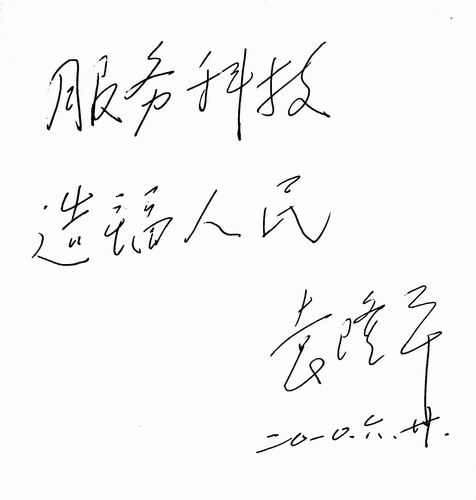 服务科技
造福人民
袁隆平
二〇一〇.六.廿.